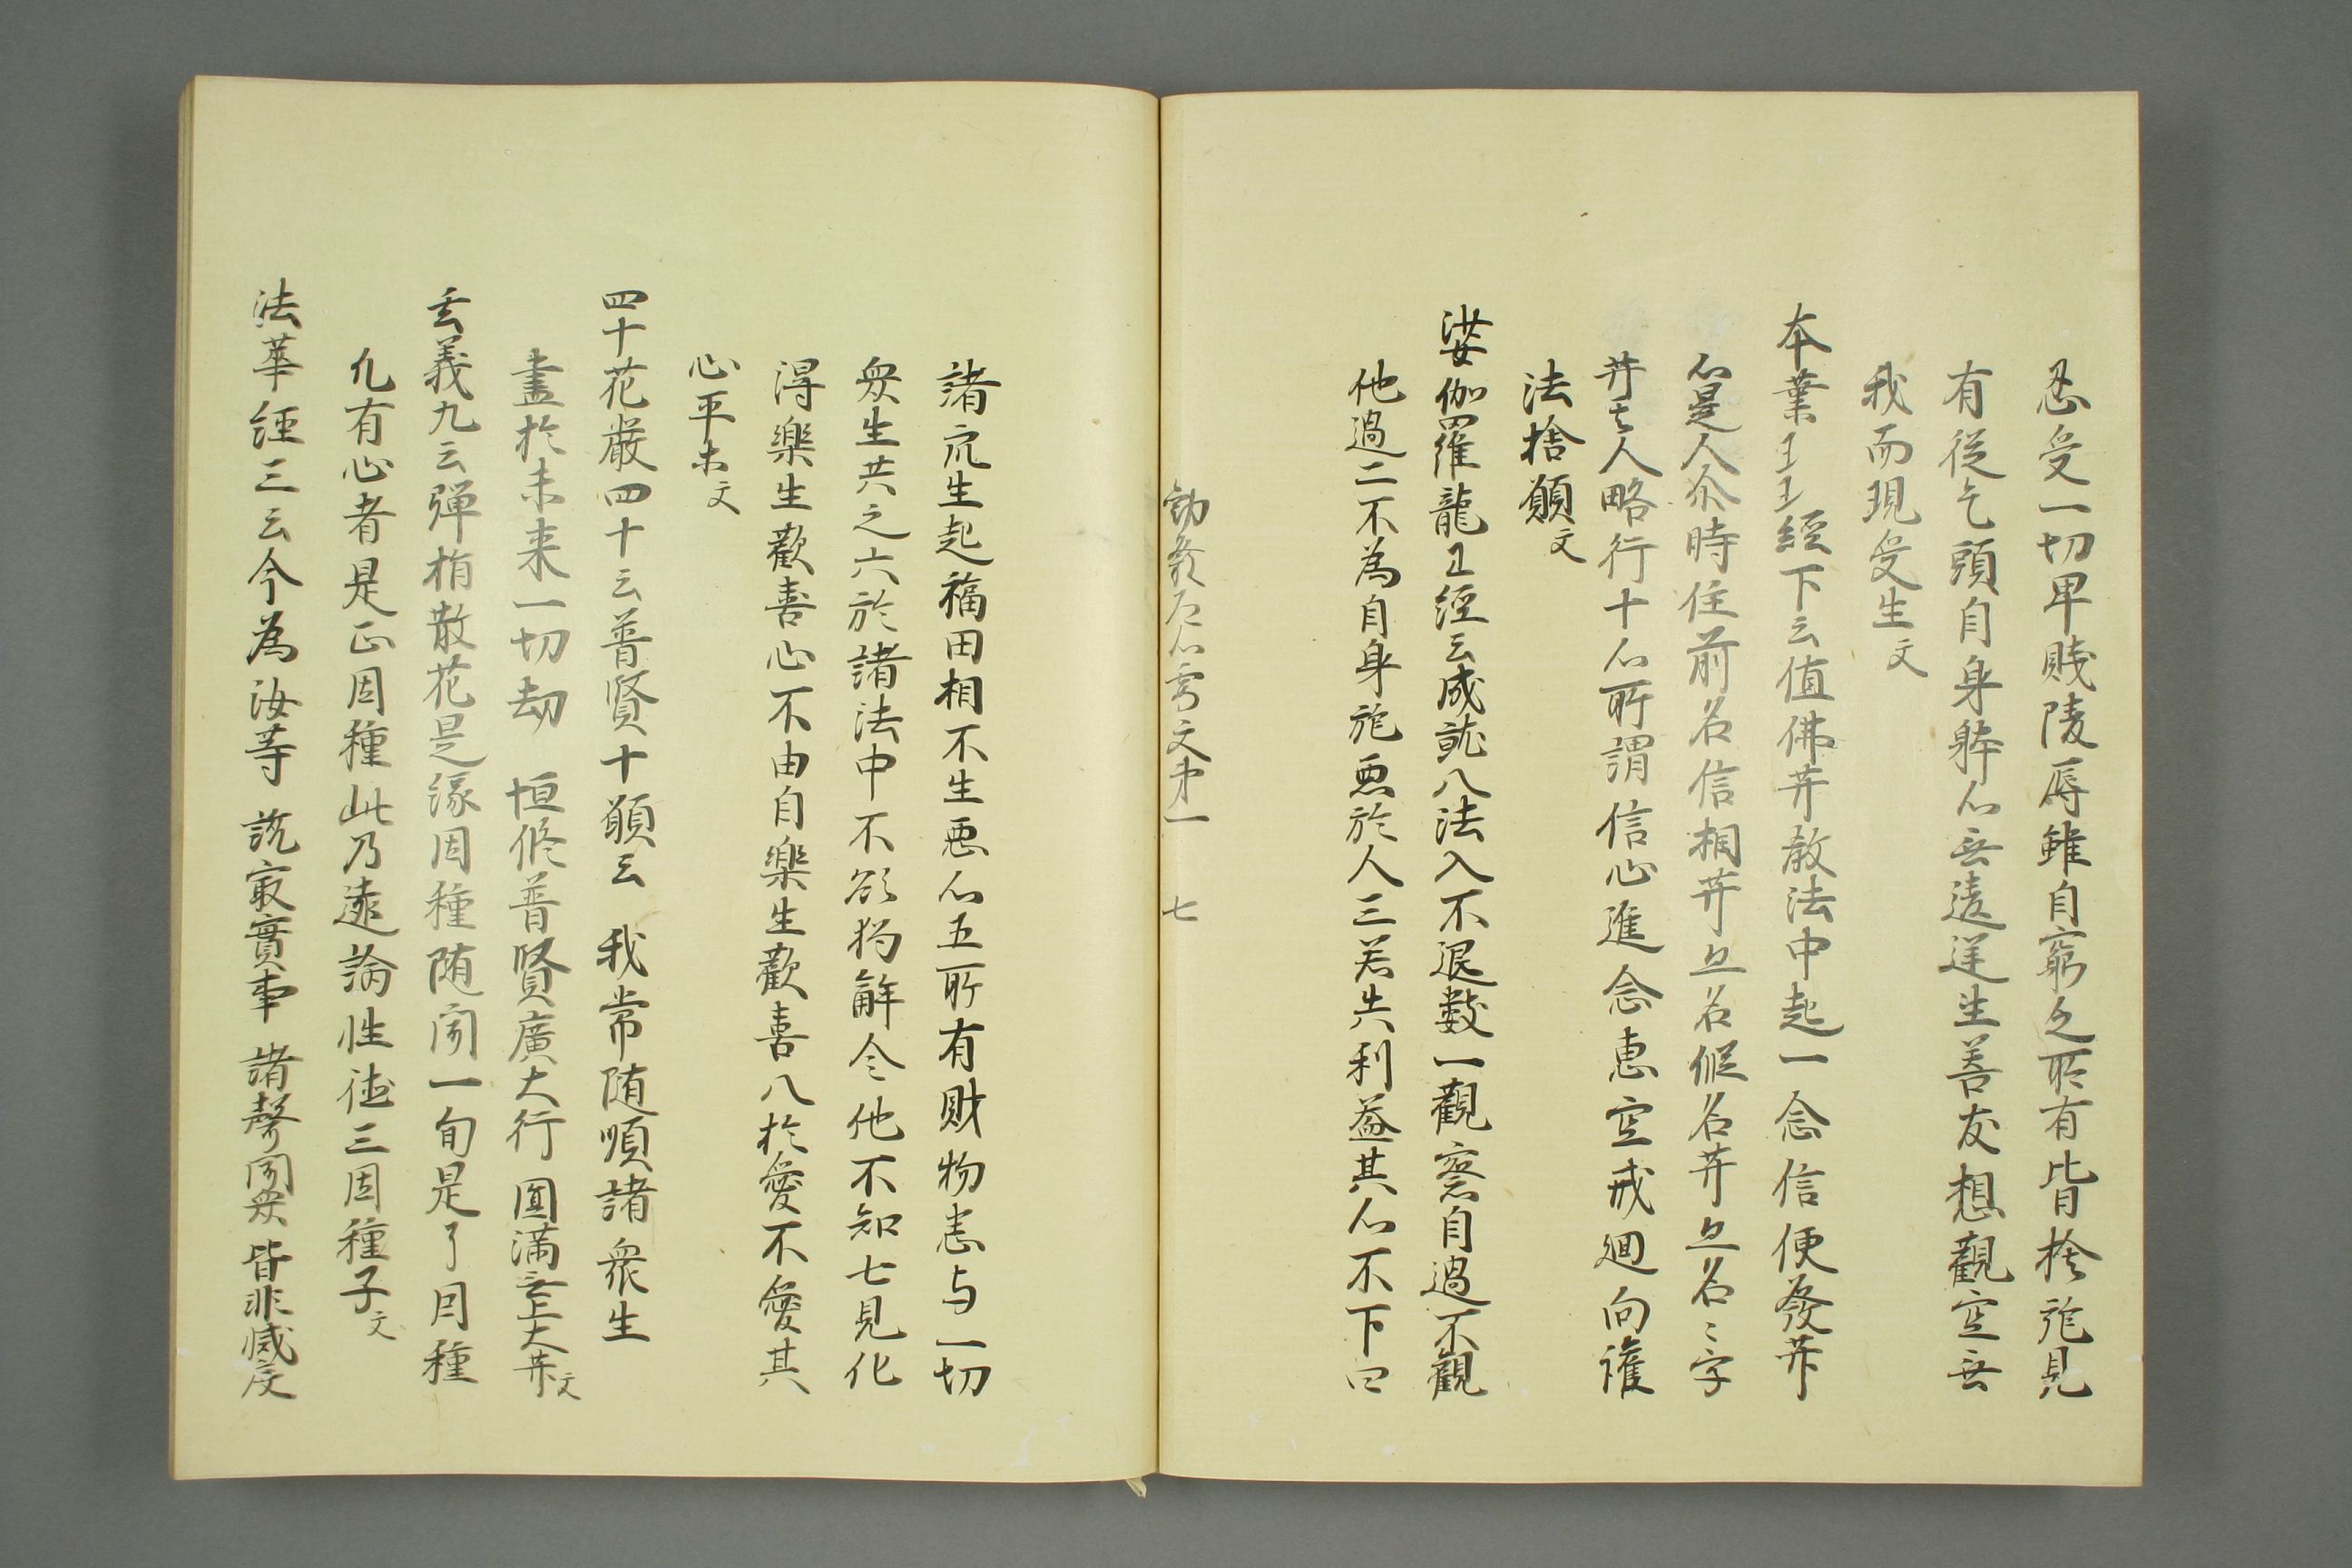 忍受一切卑賤陵辱雖自窮乏所有皆捨施見
有從乞頭自身躰心無違逆生善友想觀空無
我而現受生文
本業王王經下云值佛菩教法中起一念信便發菩
心是人尒時住前名信相菩亦名假名菩亦名〻字
菩其人略行十心所謂信心進念惠定戒廻向護
法捨願文
娑伽羅龍王經云成就八法入不退數一觀察自過不觀
他過二不為自身施惡於人三若失利益其心不下四
勸發 心 文第一 七
諸衆生起福田相不生惡心五所有財物悉与一切
衆生共之六於諸法中不欲独解令他不知七見他
得樂生歡喜心不由自樂生歡喜八於愛不愛其
心平ホ文
四十花嚴四十云普賢十願云 我常随順諸衆生
盡於未来一切劫 恒修普賢廣大行 圓滿無上大菩文
玄義九云弾指散花是縁因種随聞一句是了因種
凡有心者是正因種此乃遠論性徳三因種子文
法華經三云今為汝等 說最實事 諸聲聞衆 皆非滅度